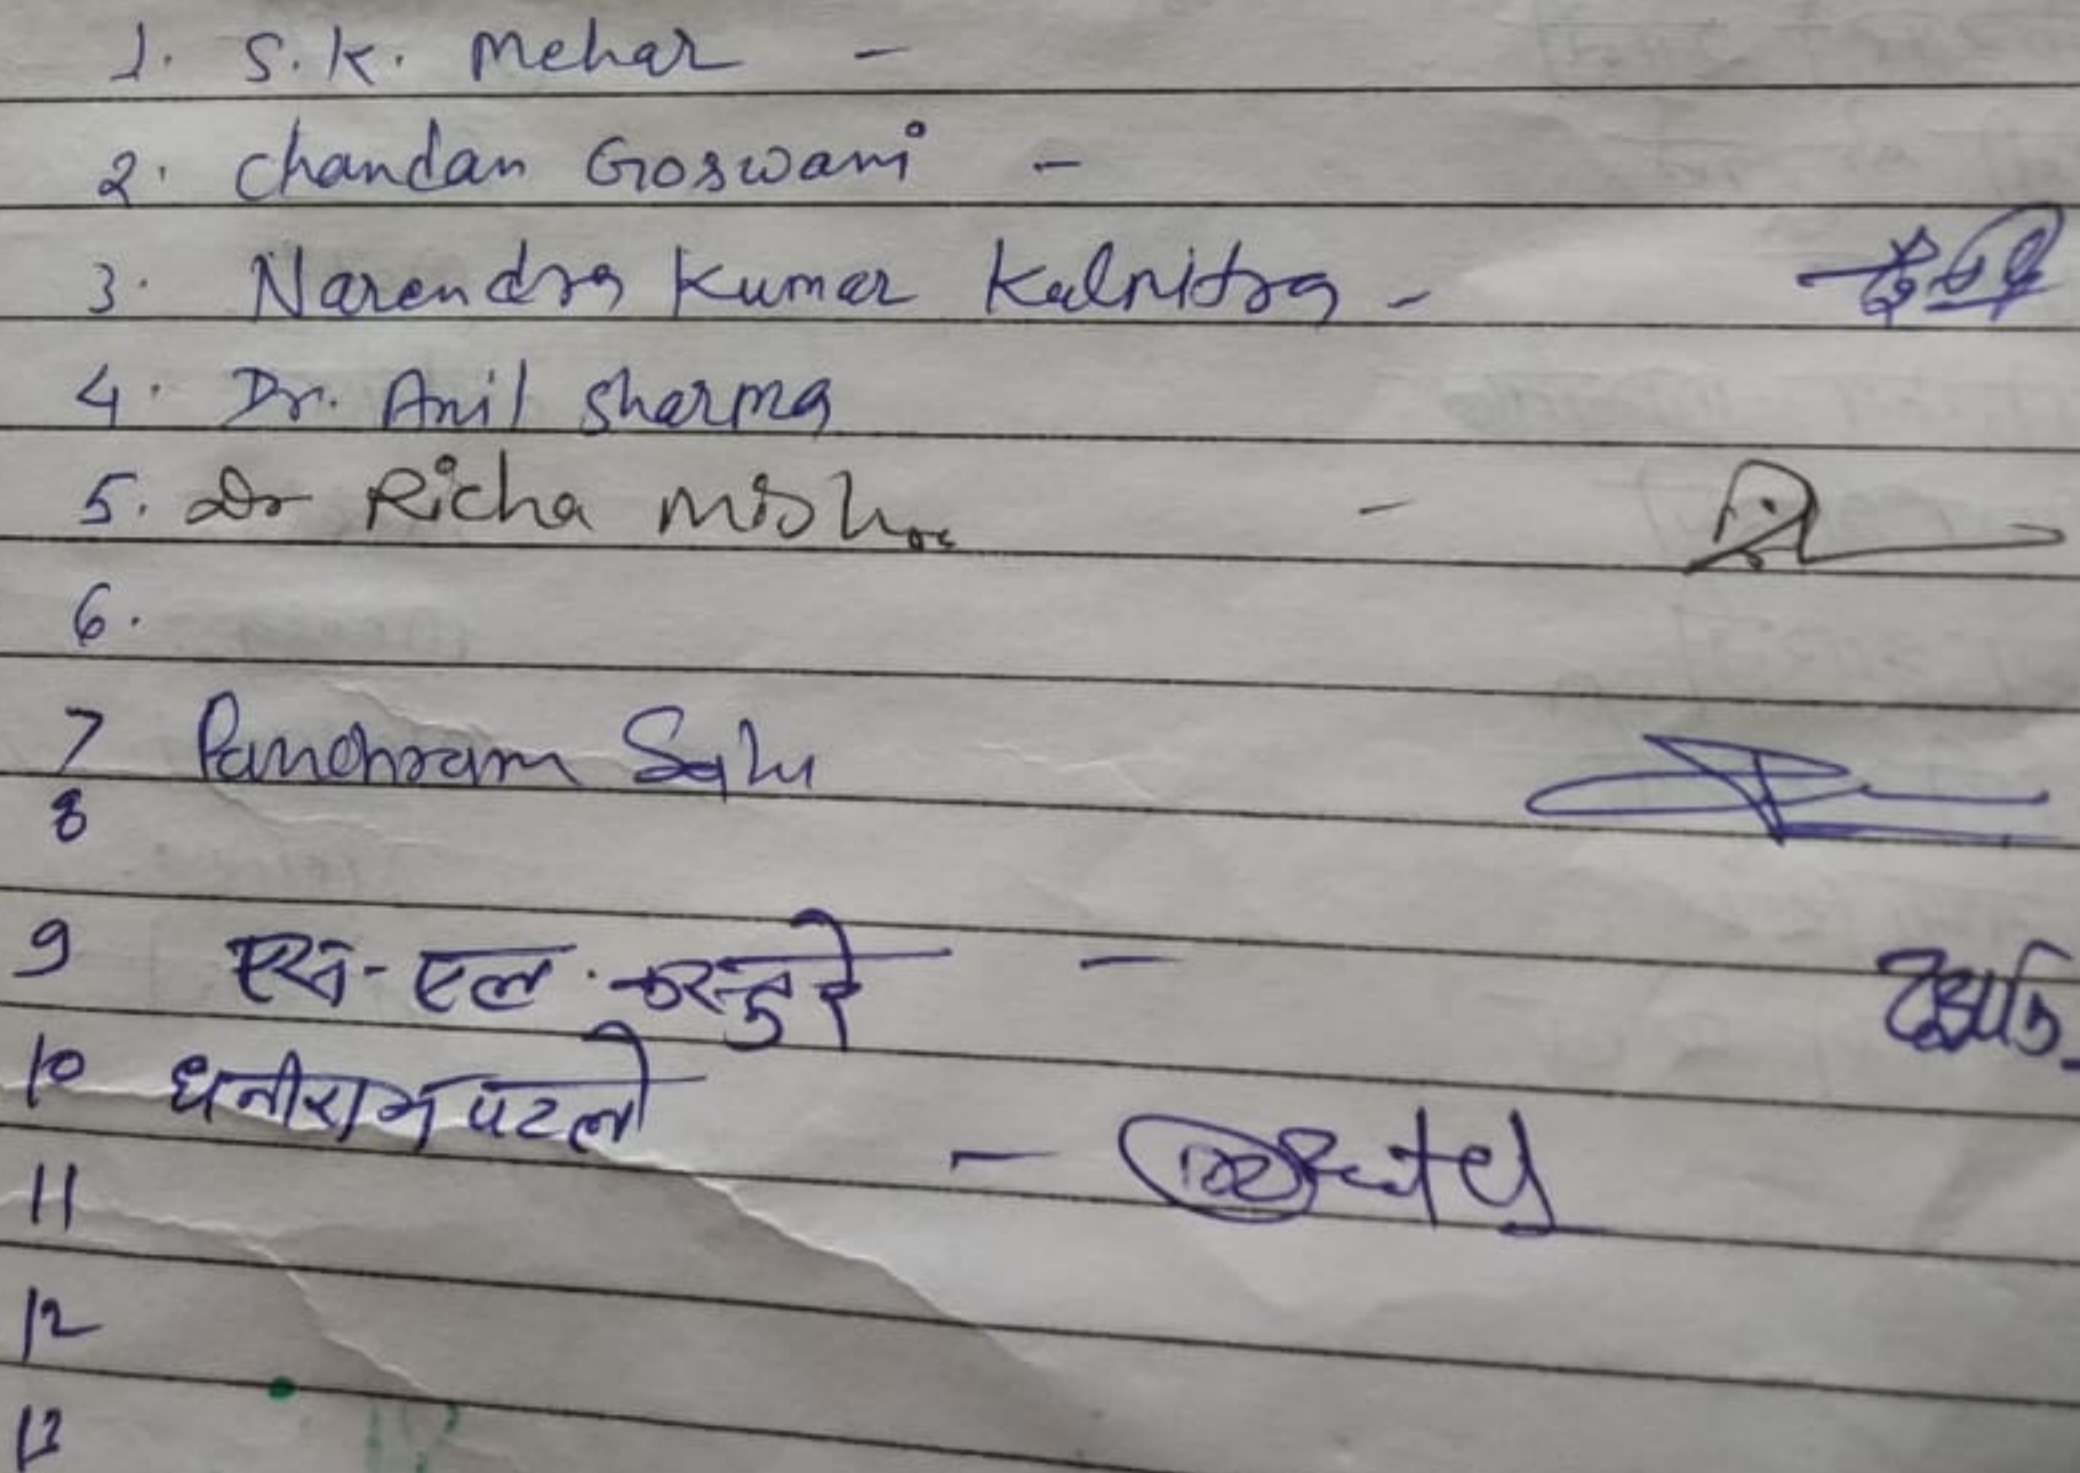 1. S.K. Mehar -
2. Chandan Goswami -
3. Narendra Kumar Kulmitra -
4. Dr. Anil Sharma
5. Dr Richa Mishra -
6.
7 Panchram Sahu
8
9 एस-एल. -
10 धनीराम पटेल - Patel
11
12
13